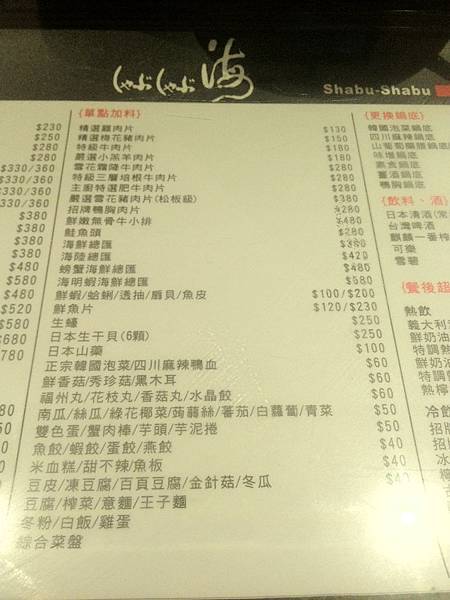 しゃぶしゃぶ 海
Shabu-Shabu
$230
$250
$280
$280
$330/360
$330/360
$330/360
$380
$380
$380
$480
$580
$480
$520
$580
$680
$780
{單點加料}
精選雞肉片 $130
精選梅花豬肉片 $150
特級牛肉片 $180
嚴選小羔羊肉片 $180
雪花霜降牛肉片 $280
特級三層培根牛肉片 $280
主廚特選肥牛肉片 $280
嚴選雪花豬肉片(松板級) $380
招牌鴨胸肉片 $280
鮮嫩無骨牛小排 $480
鮭魚頭 $280
海鮮總匯
海陸總匯 $420
螃蟹海鮮總匯 $480
海明蝦海鮮總匯 $580
鮮蝦/蛤蜊/透抽/扇貝/魚皮 $100/$200
鮮魚片 $120/$230
生蠔 $250
日本生干貝(6顆) $250
日本山藥 $100
正宗韓國泡菜/四川麻辣鴨血 $60
鮮香菇/秀珍菇/黑木耳 $60
福州丸/花枝丸/香菇丸/水晶餃 $60
南瓜/絲瓜/綠花椰菜/蒟蒻絲/蕃茄/白蘿蔔/青菜 $50
雙色蛋/蟹肉棒/芋頭/芋泥捲 $50
魚餃/蝦餃/蛋餃/燕餃 $40
米血糕/甜不辣/魚板 $40
豆皮/凍豆腐/百頁豆腐/金針菇/冬瓜 $40
豆腐/榨菜/意麵/王子麵
冬粉/白飯/雞蛋
綜合菜盤
{更換鍋底}
韓國泡菜鍋底
四川麻辣鍋底
味增鍋底
素食鍋底
薑酒鍋底
鴨胸鍋底
{飲料、酒}
日本清酒
台灣啤酒
麒麟一番榨
可樂
雪碧
{餐後超
熱飲
義大利
鮮奶油
特調熱
鮮奶油
特調
熱檸
冷飲
招牌
招
冰